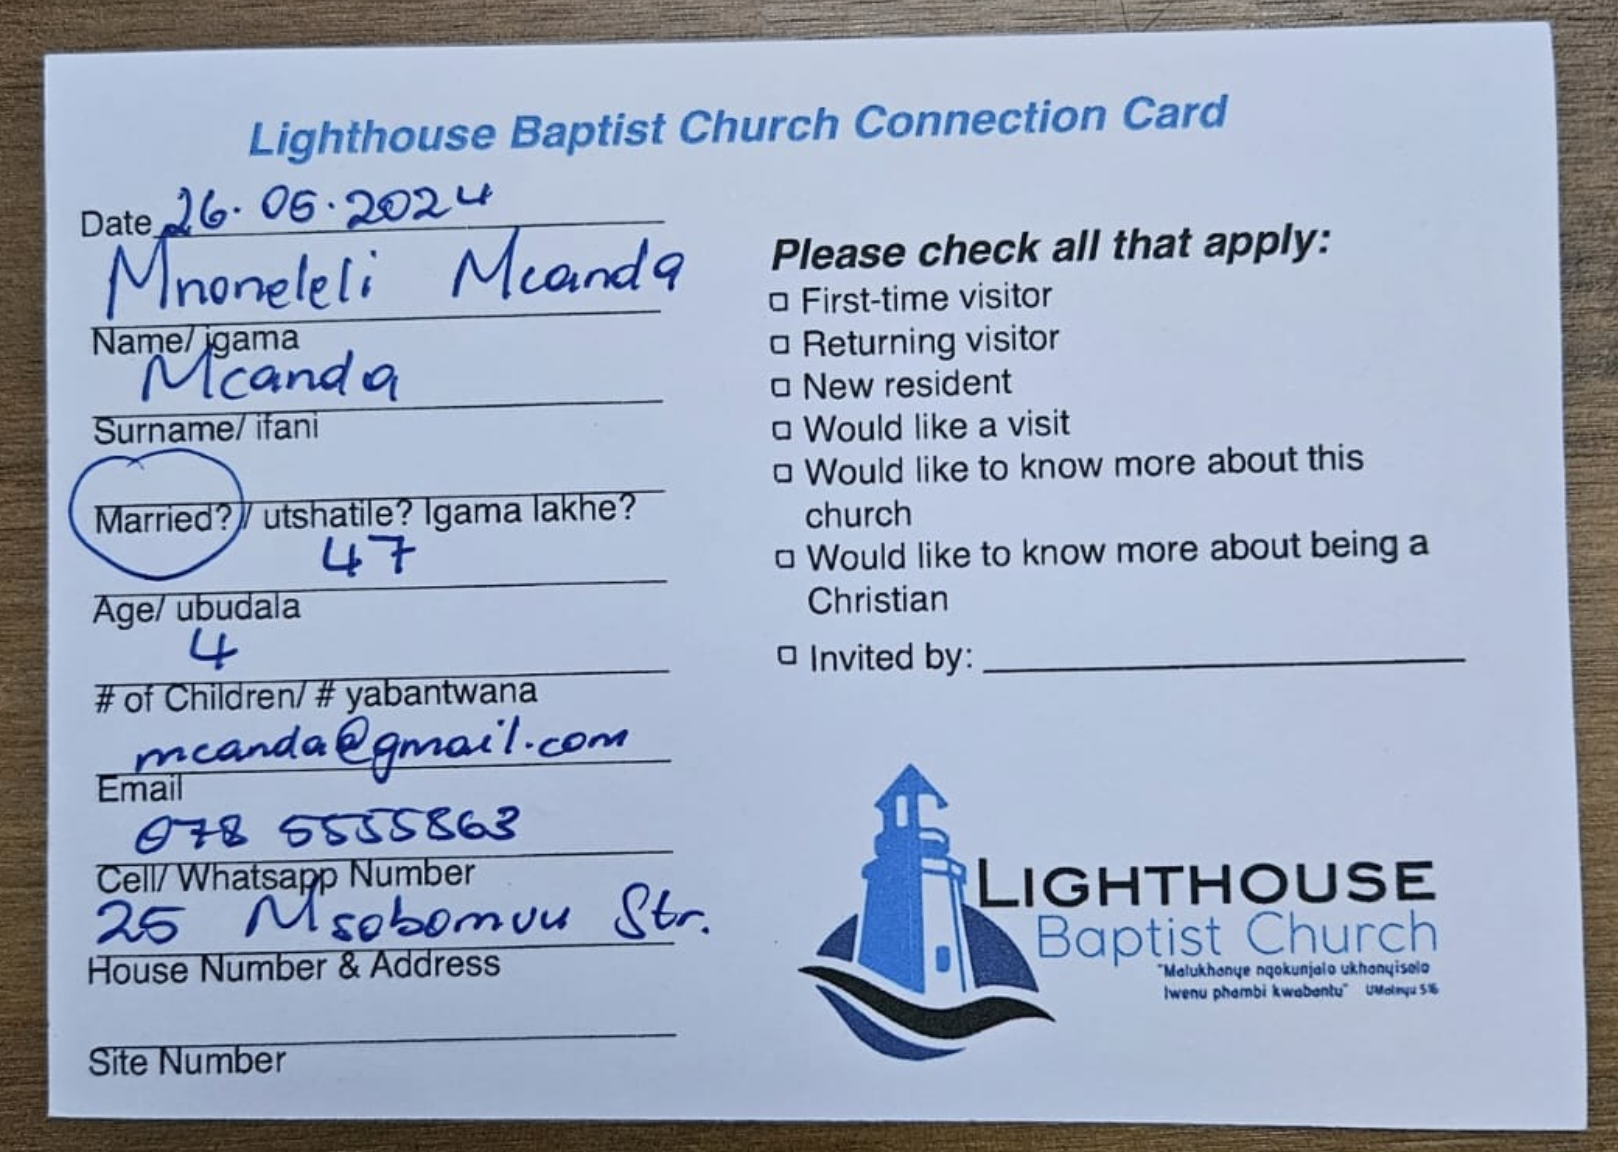 Lighthouse Baptist Church Connection Card
Date 26.05.2024
Mnoneleli Mcanda
Name/ igama
Mcanda
Surname/ ifani
Married?/ utshatile? Igama lakhe?
47
Age/ ubudala
4
# of Children/ # yabantwana
mcanda@gmail.com
Email
078 5555863
Cell/ Whatsapp Number
25 Msobomvu Str.
House Number & Address
Site Number
Please check all that apply:
First-time visitor
Returning visitor
New resident
Would like a visit
Would like to know more about this
church
Would like to know more about being a
Christian
Invited by:
LIGHTHOUSE
Baptist Church
"Malukhanye ngokunjalo ukhanyiselo
lwenu phambi kwabantu" UMateyu 5:16